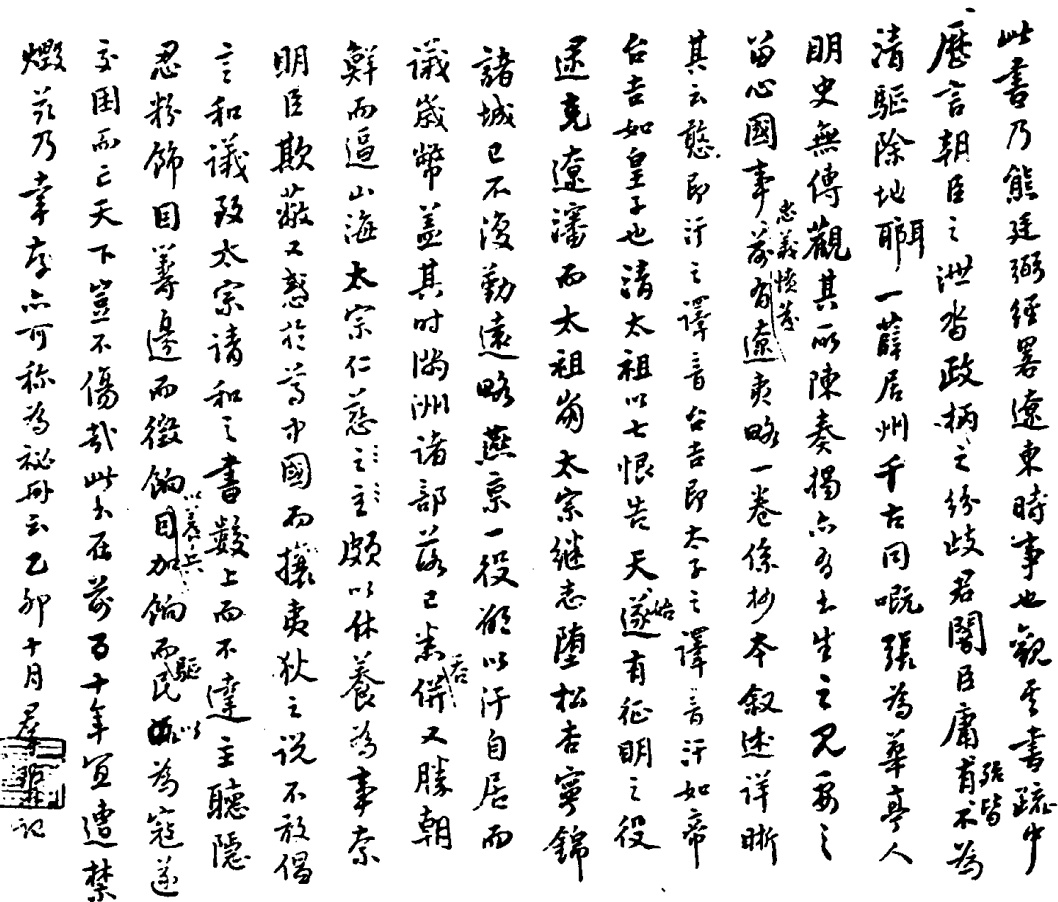 此書乃熊廷弼經畧遼東時事也觀其書疏中
歷言朝臣之泄沓政柄之紛歧君闇臣庸有不為
張皆
清驅除地耶一薛居州千古同嘅張為華亭人
明史無傳觀其所陳奏揭亦有出生之見要之
留心國事忠義憤發前有遼夷略一卷係抄本叙述詳晰
其云憨即汗之譯音台吉即太子之譯音汗如帝
台吉如皇子也清太祖以七恨告天遂始有征明之役
逮克遼瀋而太祖崩太宗继志堕松杏寧錦
諸城已不復勤遠略燕京一役猶以汗自居而
議歲幣蓋其时满洲诸部落已悉併又勝朝
鮮而逼山海太宗仁慈之主頗以休養為事奈
明臣欺蔽又惑於尊中國而攘夷狄之说不敢倡
言和議致太宗请和之書數上而不達主聽隱
忍粉飾因籌邊而徵餉以養兵因加餉而驅民以為寇遂
至困而亡天下豈不傷哉此书在前百十年宜遭禁
燬兹乃幸存亦可称為祕册云乙卯十月 记